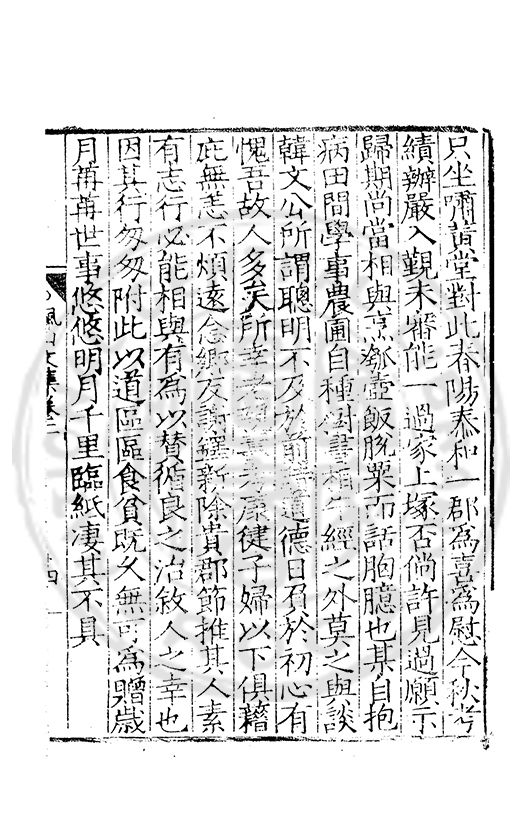 只坐嘯黃堂對此春陽泰和一郡為喜為慰今秋考
績辦嚴入覲未審能一過家上塚否倘許見過願示
歸期尚當相與烹瓠壺飯脫粟而話胸臆也某自抱
病田間學事農圃自種樹書相牛經之外莫之與談
韓文公所謂聰明不及於前時道德日負於初心有
愧吾故人多矣所幸老親康健子婦以下俱藉
庇無恙不煩遠念鄉友謝鐸新除貴郡節推其人素
有志行必能相與有為以贊循良之治敘人之幸也
因其行匆匆附此以道區區食貧既久無可為贈歲
月苒苒世事悠悠明月千里臨紙凄其不具
楓山文集卷二